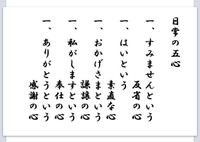 日常の五心
一、すみませんという
反省の心
一、はいという
素直な心
一、おかげさまという
謙譲の心
一、私がしますという
奉仕の心
一、ありがとうという
感謝の心